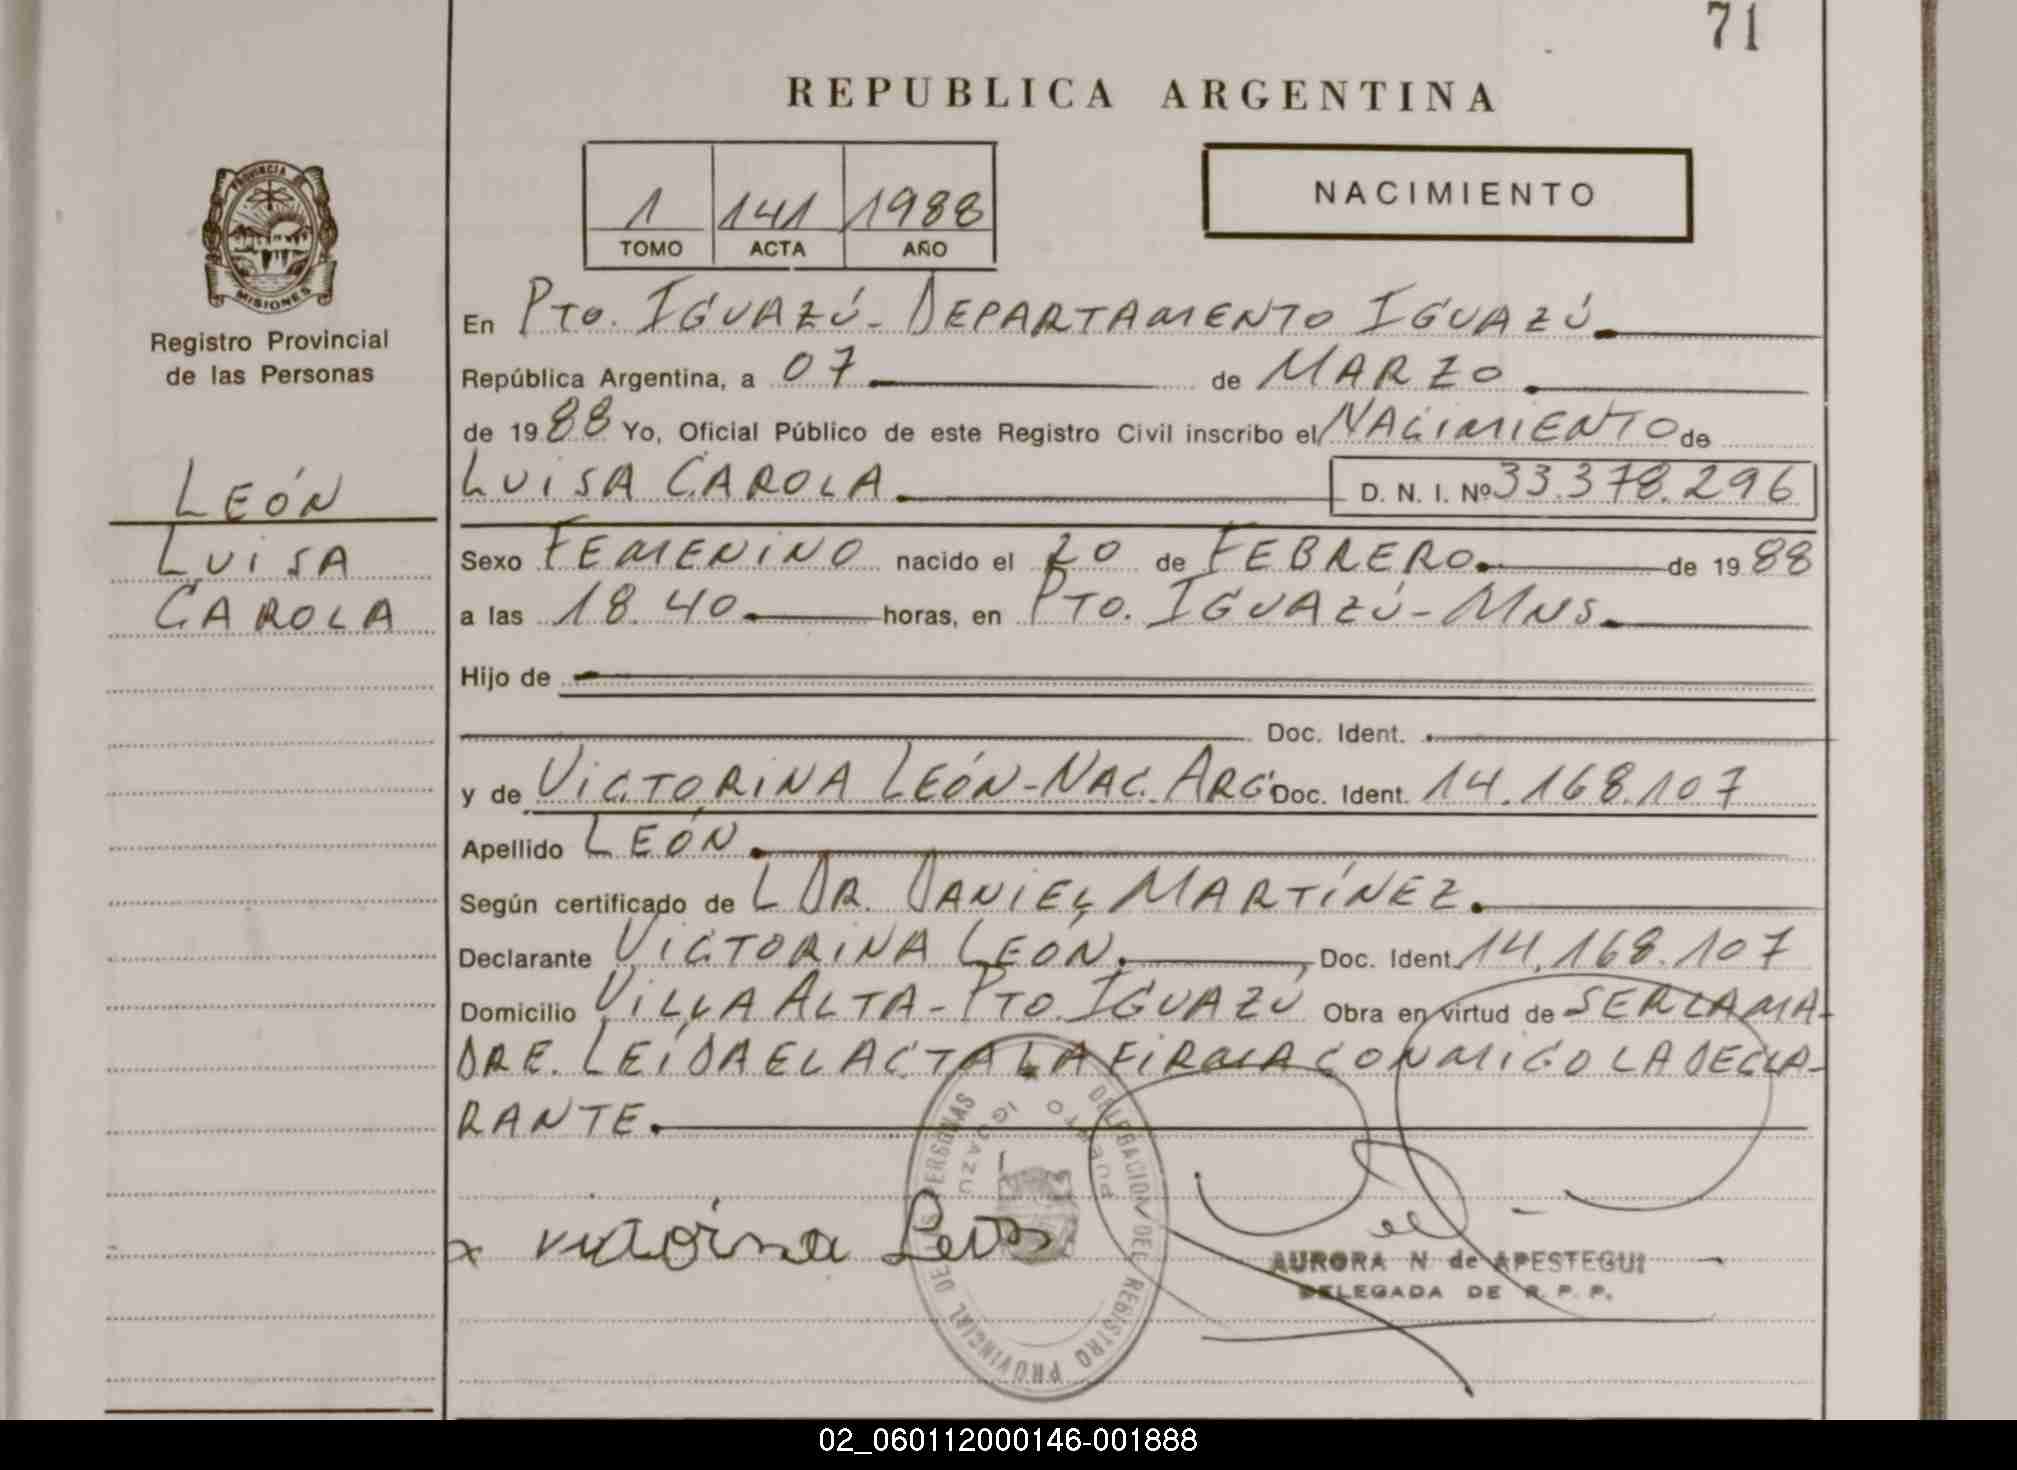 71
REPUBLICA ARGENTINA
PROVINCIA DE
MISIONES
Registro Provincial
de las Personas
1 141 1988
TOMO ACTA AÑO
NACIMIENTO
En PTO. IGUAZÚ - DEPARTAMENTO IGUAZÚ.
República Argentina, a 07 de MARZO
de 1988 Yo, Oficial Público de este Registro Civil inscribo el NACIMIENTO de
LUISA CAROLA D. N. I. Nº 33.378.296
LEÓN
LUISA
CAROLA
Sexo FEMENINO nacido el 20 de FEBRERO. de 1988
a las 18.40 horas, en PTO. IGUAZÚ - MNS.
Hijo de
Doc. Ident.
y de VICTORINA LEÓN - NAC. ARG Doc. Ident. 14.168.107
Apellido LEÓN.
Según certificado de L DR. DANIEL MARTÍNEZ.
Declarante VICTORINA LEÓN. Doc. Ident. 14.168.107
Domicilio VILLA ALTA - PTO. IGUAZÚ Obra en virtud de SER LA MA-
DRE. LEÍDA EL ACTA LA FIRMA CONMIGO LA DECLA-
RANTE.
DELEGACION DEL REGISTRO PROVINCIAL DE LAS PERSONAS
PUERTO IGUAZU
x victorina Leon
AURORA N de APESTEGUI
DELEGADA DE R. P. P.
02_060112000146-001888